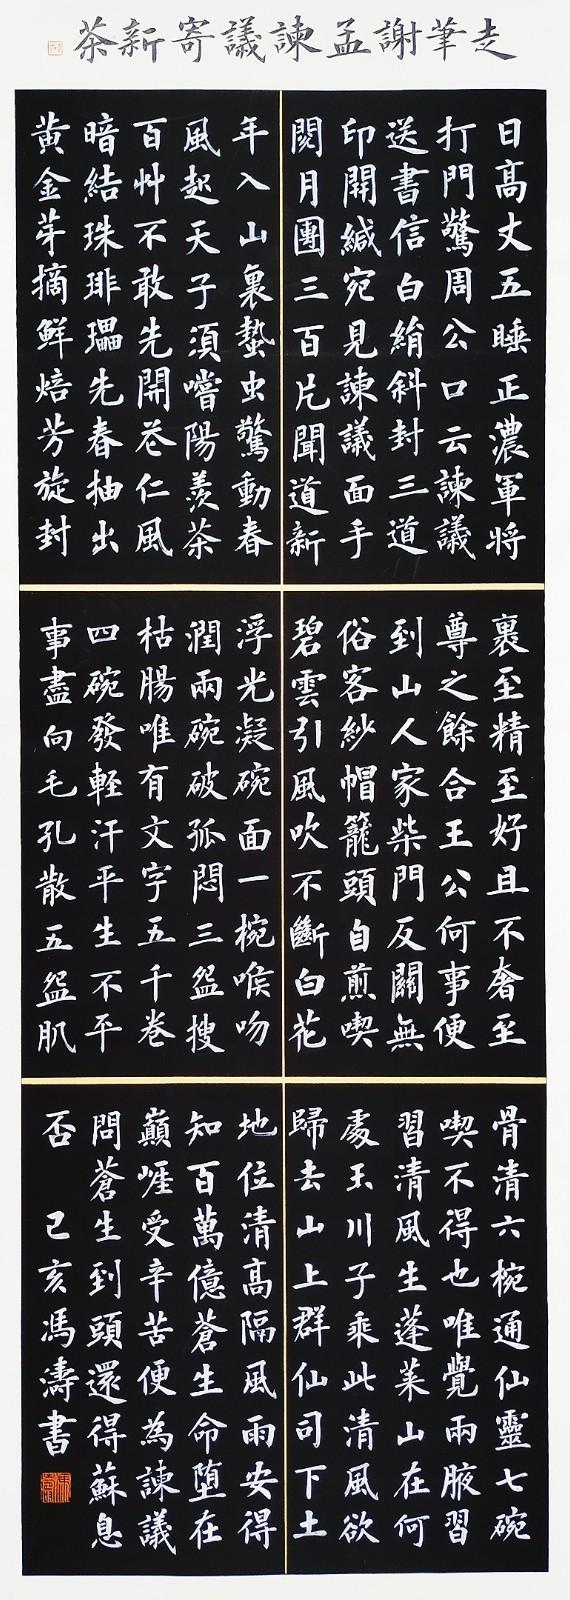 走筆謝孟諫議寄新茶
日高丈五睡正濃軍將
打門驚周公口云諫議
送書信白絹斜封三道
印開緘宛見諫議面手
閱月團三百片聞道新
年入山裏蟄虫驚動春
風起天子須嚐陽羨茶
百艸不敢先開花仁風
暗結珠琲瓃先春抽出
黃金芽摘鮮焙芳旋封
裏至精至好且不奢至
尊之餘合王公何事便
到山人家柴門反關無
俗客紗帽籠頭自煎喫
碧雲引風吹不斷白花
浮光凝碗面一椀喉吻
潤兩碗破孤悶三盌搜
枯腸唯有文字五千卷
四碗發輕汗平生不平
事盡向毛孔散五盌肌
骨清六椀通仙靈七碗
喫不得也唯覺兩腋習
習清風生蓬萊山在何
處玉川子乘此清風欲
歸去山上群仙司下土
地位清高隔風雨安得
知百萬億蒼生命墮在
巔崖受辛苦便為諫議
問蒼生到頭還得蘇息
否 己亥馮濤書